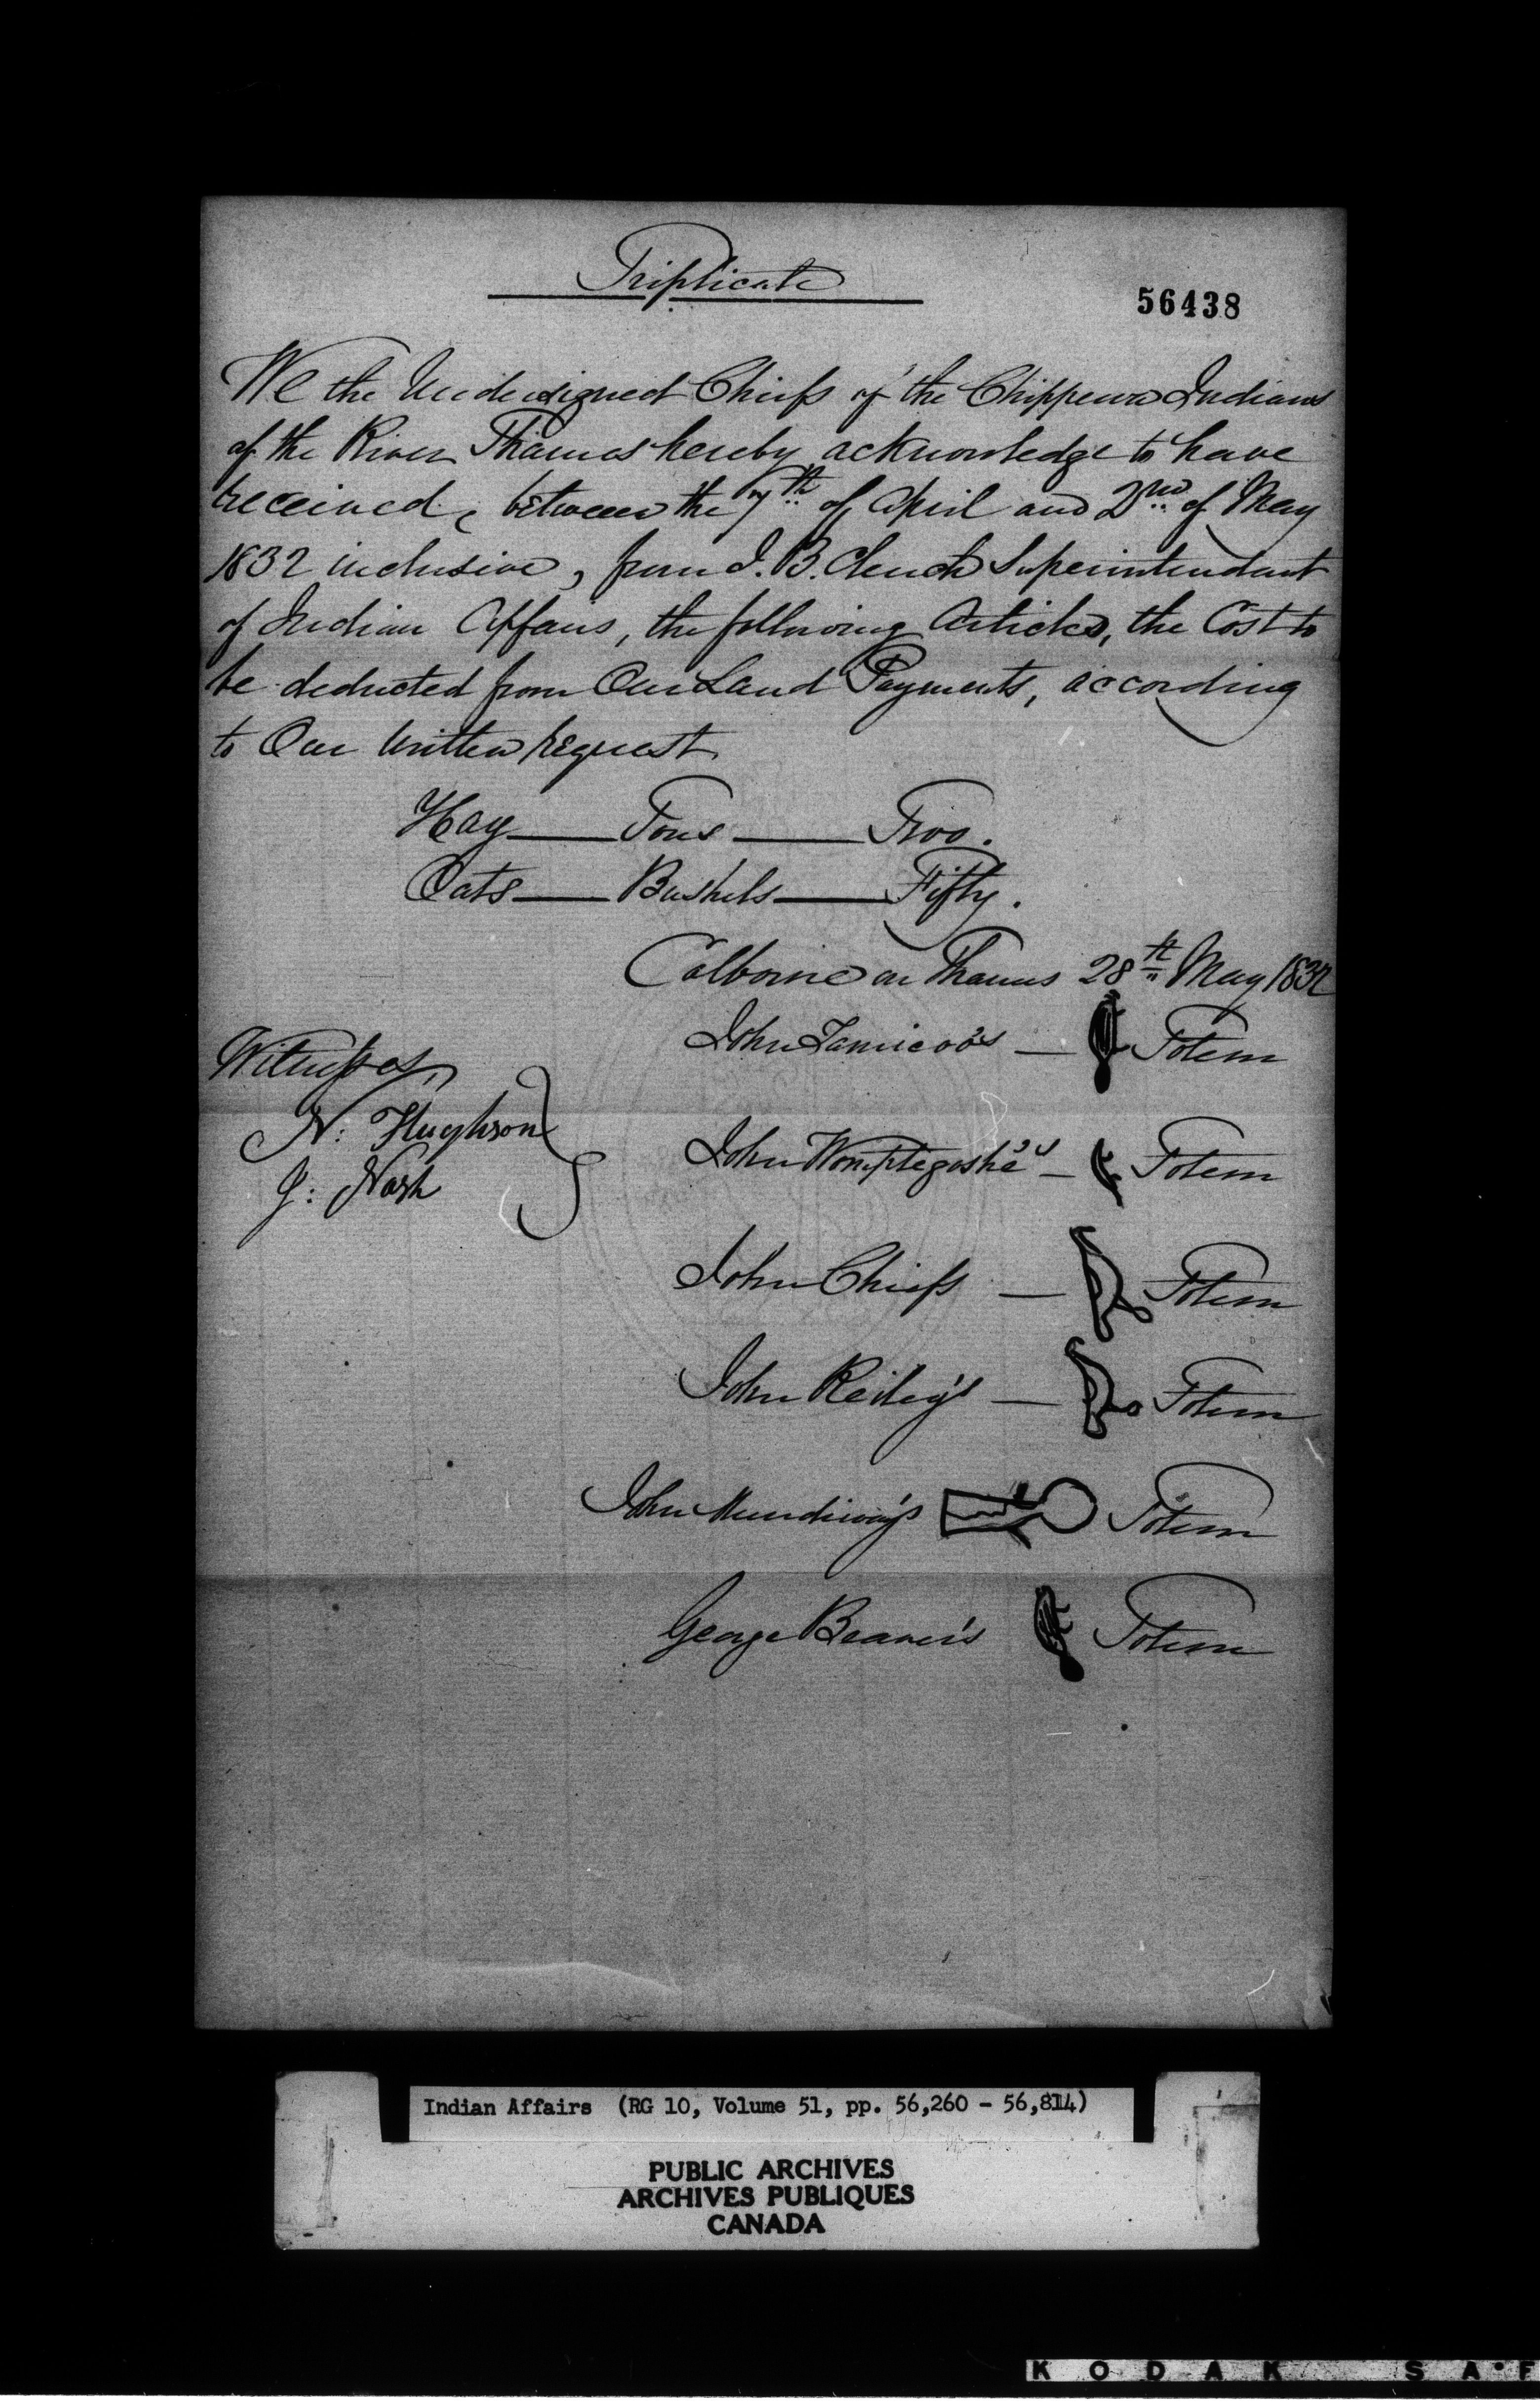 Triplicate
56438
We the Undersigned Chiefs of the Chippewa Indians
of the River Thames hereby acknowledge to have
received, between the 7th of April and 2nd of May
1832 inclusive, from J. B. Clench Superintendant
of Indian Affairs, the following Articles, the Cost to
be deducted from Our Land Payments, according
to Our written request
Hay — Tons — Two.
Oats — Bushels — Fifty.
Colborne on Thames 28th May 1832
John — Totem
Witnesses,
N: Hughson
J: Nash
John — Totem
John Chiefs — Totem
John Reiley's — Totem
John Totem
George Beaver's Totem
Indian Affairs (RG 10, Volume 51, pp. 56,260 - 56,814)
PUBLIC ARCHIVES
ARCHIVES PUBLIQUES
CANADA
KODAK SAF